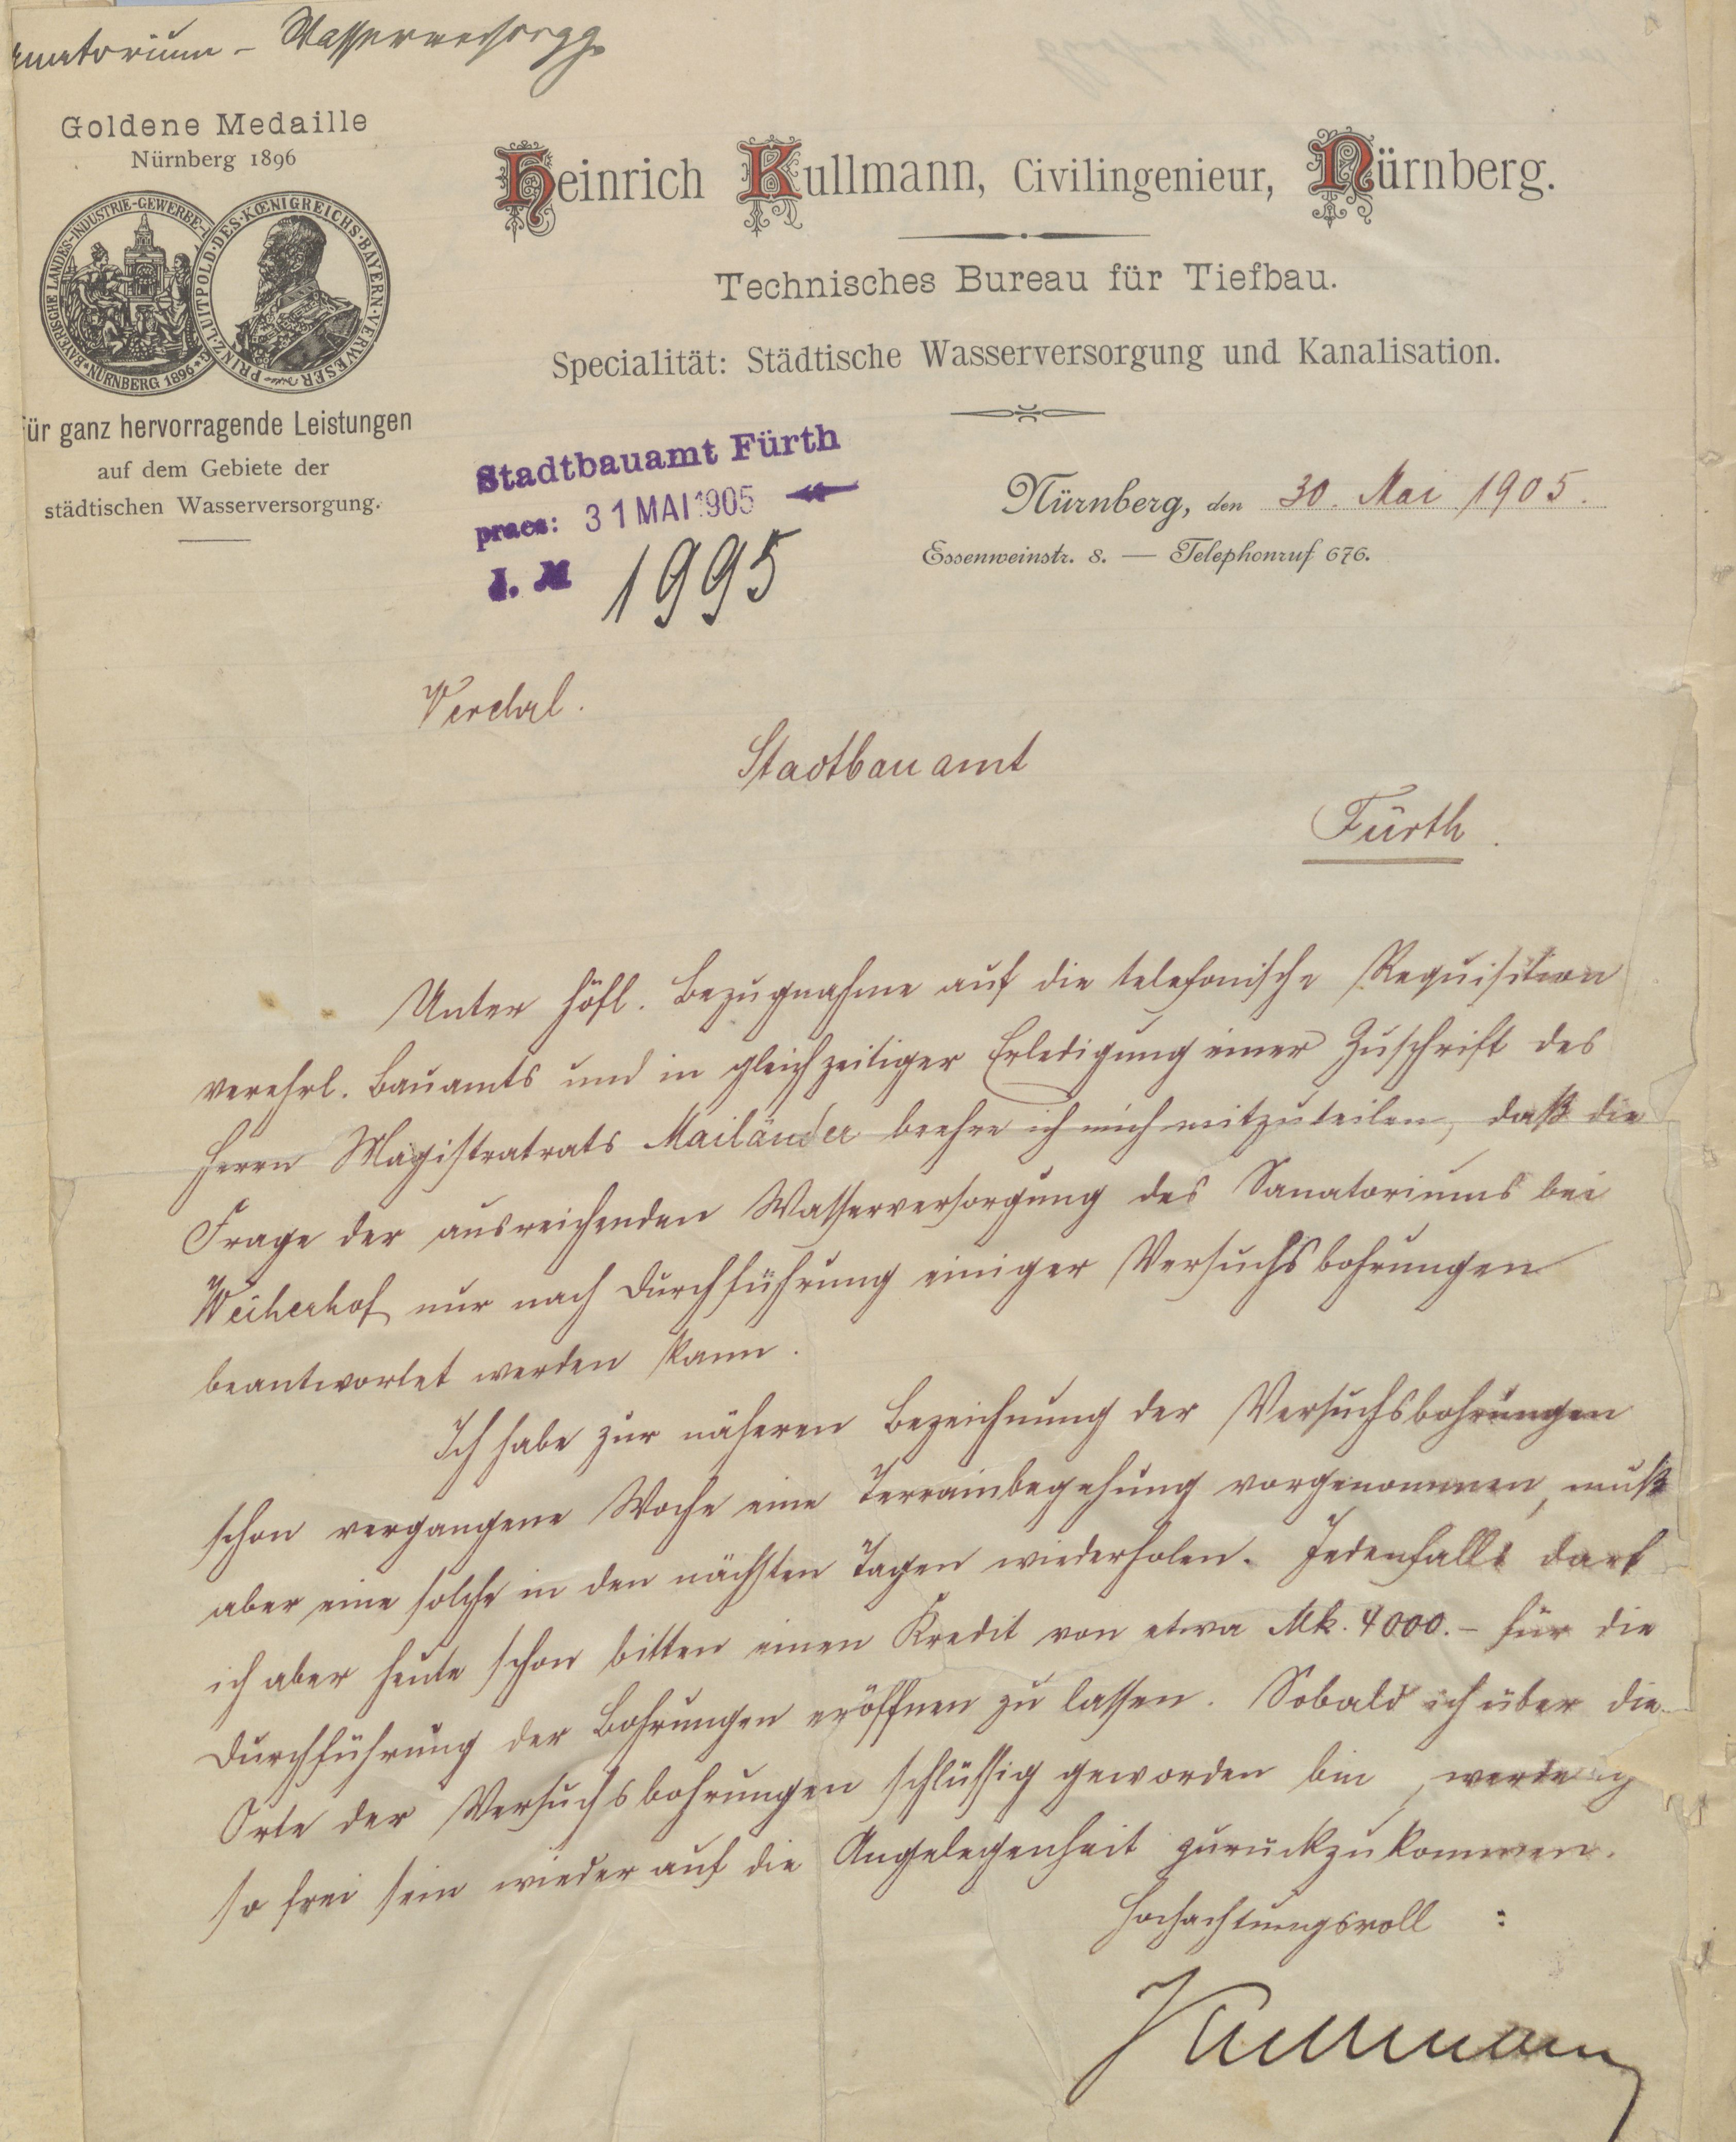 Wasserversorgg.
Goldene Medaille
Nürnberg 1896
BAYERISCHE LANDES-INDUSTRIE-GEWERBE-
NÜRNBERG 1896
PRINZ·LUITPOLD·DES·KŒNIGREICHS·BAYERN·VERWESER
für ganz hervorragende Leistungen
auf dem Gebiete der
städtischen Wasserversorgung.
Heinrich Kullmann, Civilingenieur, Nürnberg.
Technisches Bureau für Tiefbau.
Specialität: Städtische Wasserversorgung und Kanalisation.
Stadtbauamt Fürth
praes: 31 MAI 1905
J. № 1995
Nürnberg, den 30. Mai 1905.
Essenweinstr. 8. — Telephonruf 676.
Verehrl.
Stadtbauamt
Fürth.
Unter höfl. Bezugnahme auf die telefonische Requisition
verehrl. Bauamts und in gleichzeitiger Erledigung einer Zuschrift des
Herrn Magistratrats Mailänder beehre ich mich mitzuteilen, daß die
Frage der ausreichenden Wasserversorgung des Sanatoriums bei
Weiherhof nur nach Durchführung einiger Versuchsbohrungen
beantwortet werden kann.
Ich habe zur näheren Bezeichnung der Versuchsbohrungen
schon vergangene Woche eine Terrainbegehung vorgenommen, muß
aber eine solche in den nächsten Tagen wiederholen. Jedenfalls darf
ich aber heute schon bitten einen Kredit von etwa Mk. 4000.- für die
Durchführung der Bohrungen eröffnen zu lassen. Sobald ich über die
Orte der Versuchsbohrungen schlüssig geworden bin, werde ich
so frei sein wieder auf die Angelegenheit zurückzukommen.
Hochachtungsvoll :
Kullmann